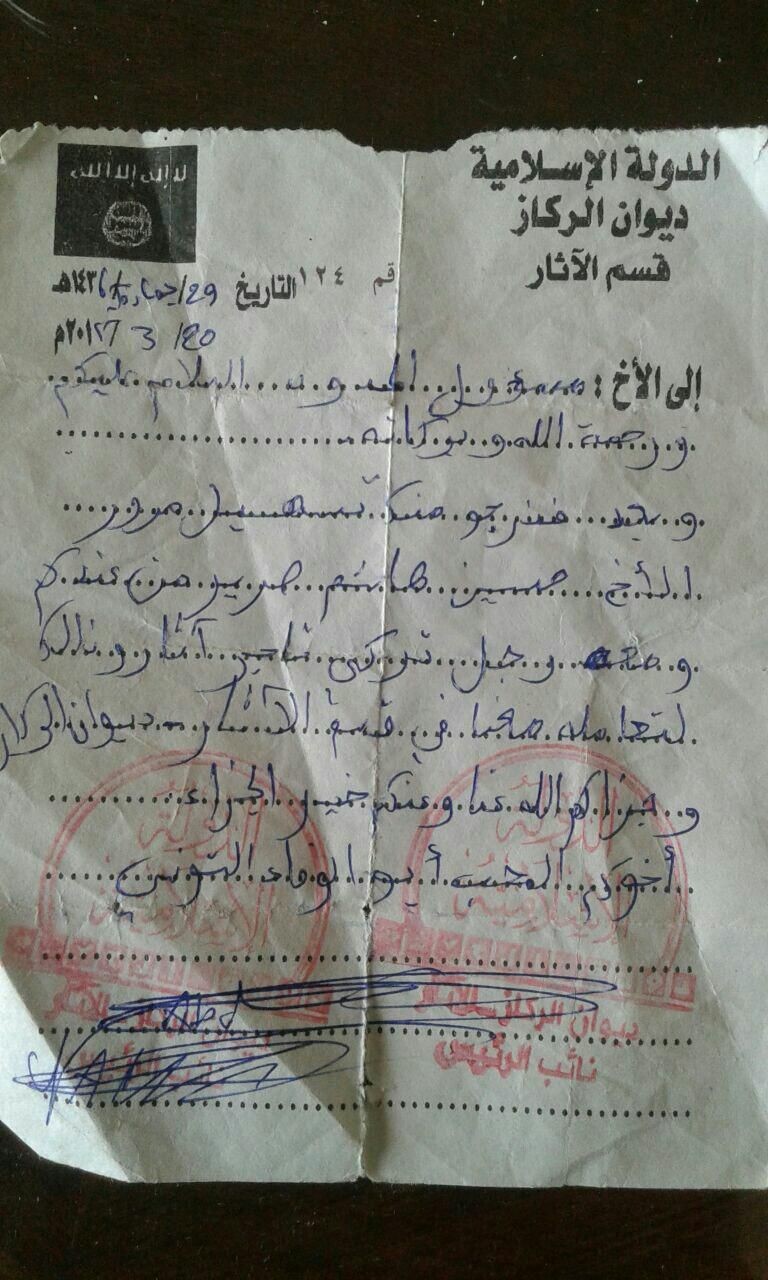 الدولة الإسلامية
ديوان الركاز
قسم الآثار
لا إله إلا الله
رقم ١٢٤
التاريخ 29/ جماد /١٤٣٦هـ
20/ 3 ٢٠١م
إلى الأخ : مسؤول الحدود السلام عليكم
و رحمة الله و بركاته
و بعد فنرجو منك تسهيل مرور
الأخ حسين هاشم من عندكم
و معه رجل تركي تاجر آثار و ذالك
لتعامله معنا في قسم الآثار ديوان الركاز
و جزاكم الله عنا و عنكم خير الجزاء
أخوكم المحب أبو الوفاء التونسي
الدولة
الإسلامية
ديوان الركاز للآثار
نائب الرئيس
الدولة
الإسلامية